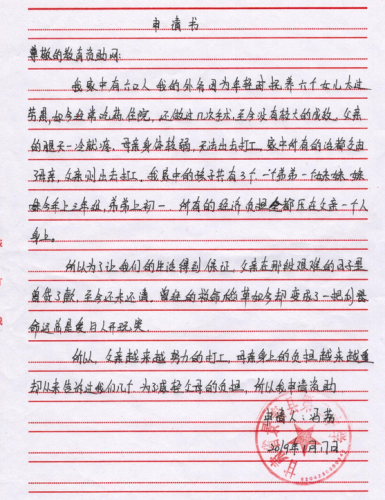 申请书
尊敬的教育资助网:
我家中有六口人 我的外爷因为年轻时抚养六个女儿太过
劳累,如今经常吃药住院,还做过几次手术,至今没有较大的成效。父亲
的腿天一冷就疼,母亲身体较弱,无法出去打工。家中所有的活都交由
了母亲,父亲则出去打工,我家中的孩子共有3个,一个弟弟一个妹妹,妹
妹今年上三年级,弟弟上初一,所有的经济负担全都压在父亲一个人
身上。
所以为了让我们的生活得到保证,父亲在那段艰难的日子里
首贷了款,至今还未还清,曾经的救命的草如今却变成了一把利
命运总是爱日人开玩笑
所以,父亲越来越努力的打工,母亲身上的负担越来越重
却从来告诉过我们几个,为了减轻父母的负担,所以我申请资助
申请人:冯
2019年1月17日